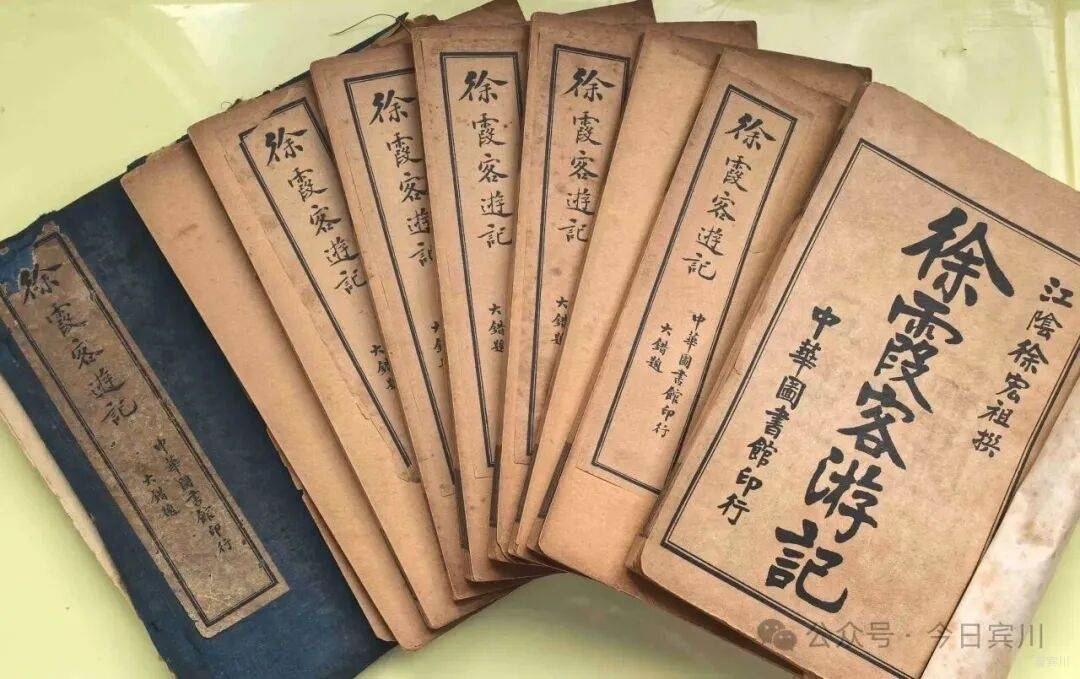 徐霞客遊記
中華圖書館印行
大錯題
徐霞客遊記
大錯題
徐霞客遊記
大錯題
徐霞客遊記
大錯題
徐霞客遊記
大錯題
徐霞客遊記
中華圖書館印行
大錯題
江陰徐宏祖撰
徐霞客游記
中華圖書館印行
公众号 · 今日宾川